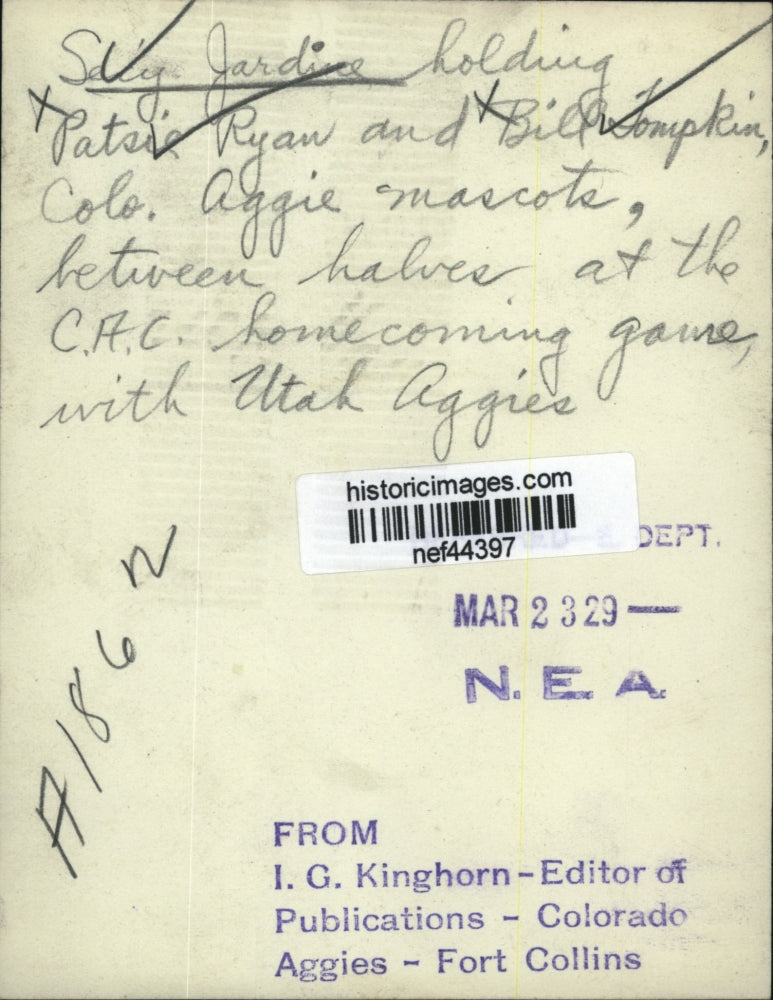 Sally Jardine holding
x Patsie Ryan and x Bill Tompkin,
Colo. Aggie mascots,
between halves at the
C.A.C. homecoming game,
with Utah Aggies
historicimages.com
nef44397
DEPT.
MAR 23 29 —
N. E. A.
A186 N
FROM
I. G. Kinghorn - Editor of
Publications - Colorado
Aggies - Fort Collins